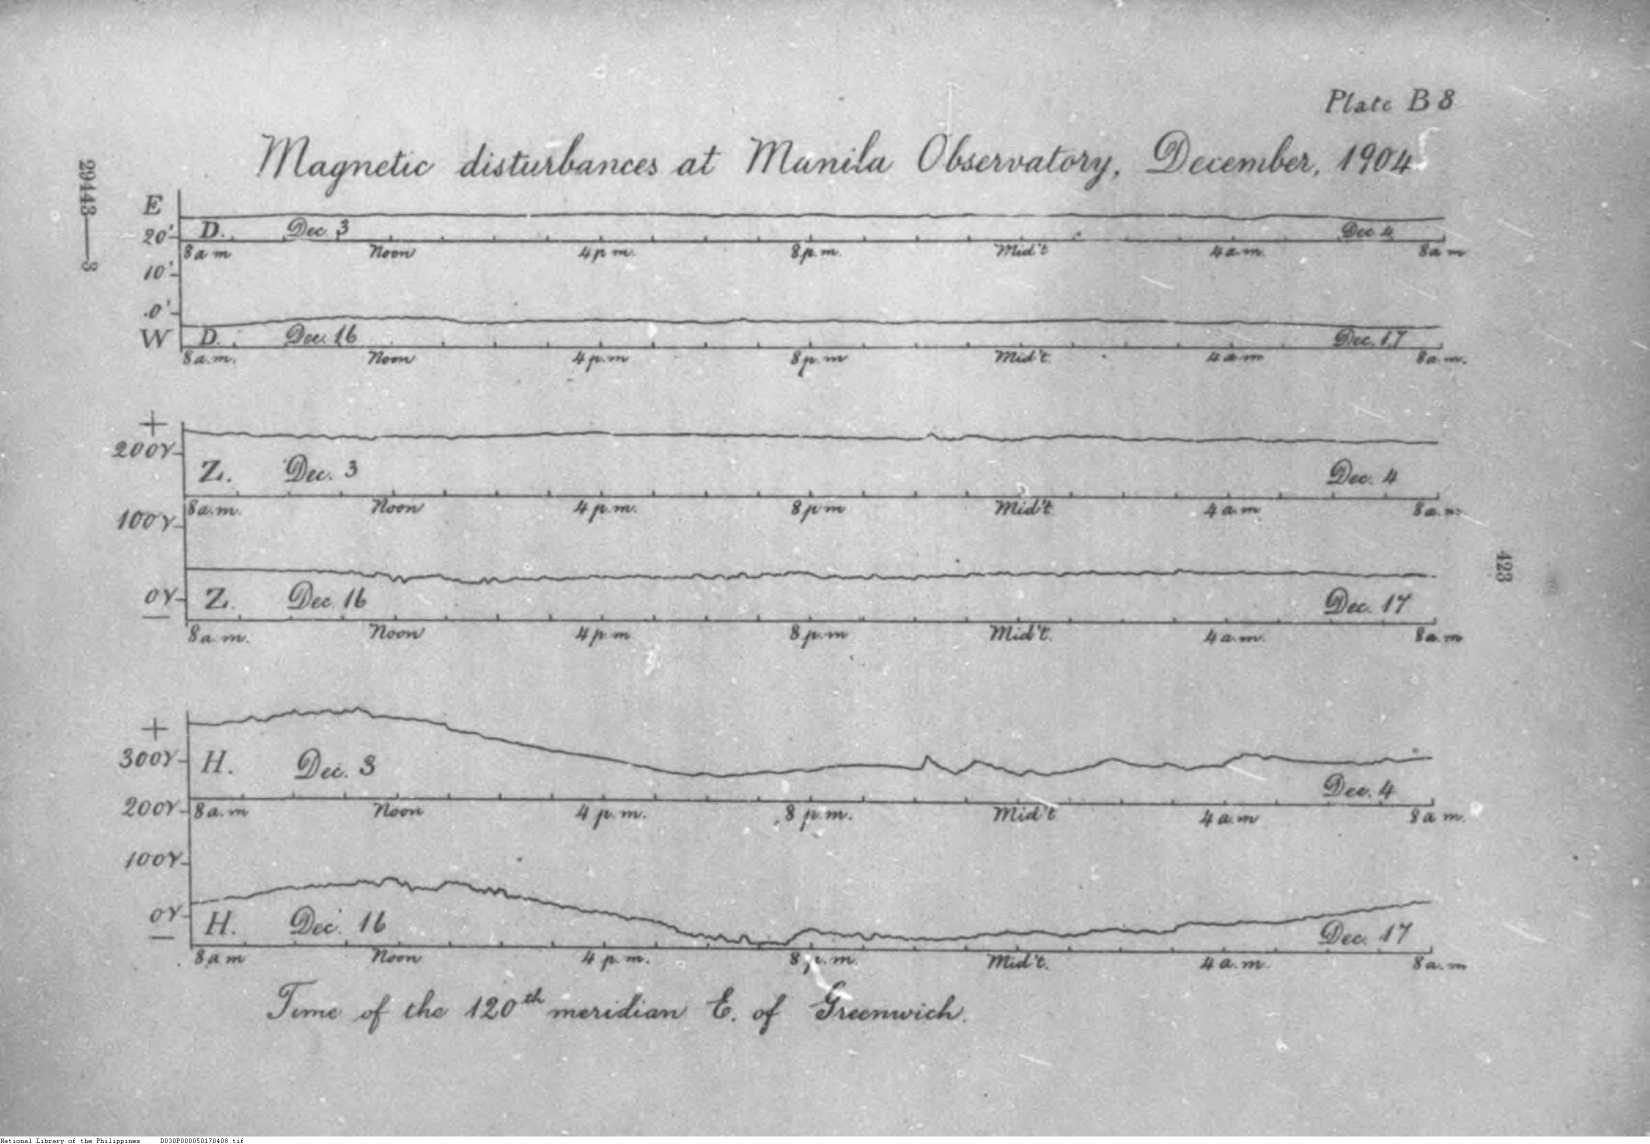 Plate B 8
Magnetic disturbances at Manila Observatory, December, 1904
29443——3
E
20'
D. Dec. 3 Dec 4
8 a m Noon 4 p m. 8 p. m. Mid't 4 a. m. 8 a m
10'
.0'
W
D. Dec. 16 Dec. 17
8 a. m. Noon 4 p. m 8 p. m Mid't. 4 a m 8 a. m.
+
200γ
Z. Dec. 3 Dec. 4
8 a. m. Noon 4 p. m. 8 p m Mid't 4 a m 8 a. m
100γ
0γ
—
Z. Dec. 16 Dec. 17
8 a. m. Noon 4 p. m 8 p. m Mid't. 4 a. m. 8 a. m
423
+
300γ
H. Dec. 3 Dec. 4
200γ
8 a. m Noon 4 p. m. 8 p. m. Mid't 4 a. m 8 a m.
100γ
0γ
—
H. Dec. 16 Dec. 17
8 a m Noon 4 p. m. 8 p. m. Mid't. 4 a. m. 8 a. m
Time of the 120th meridian E. of Greenwich.
National Library of the Philippines D030P000050170408.tif